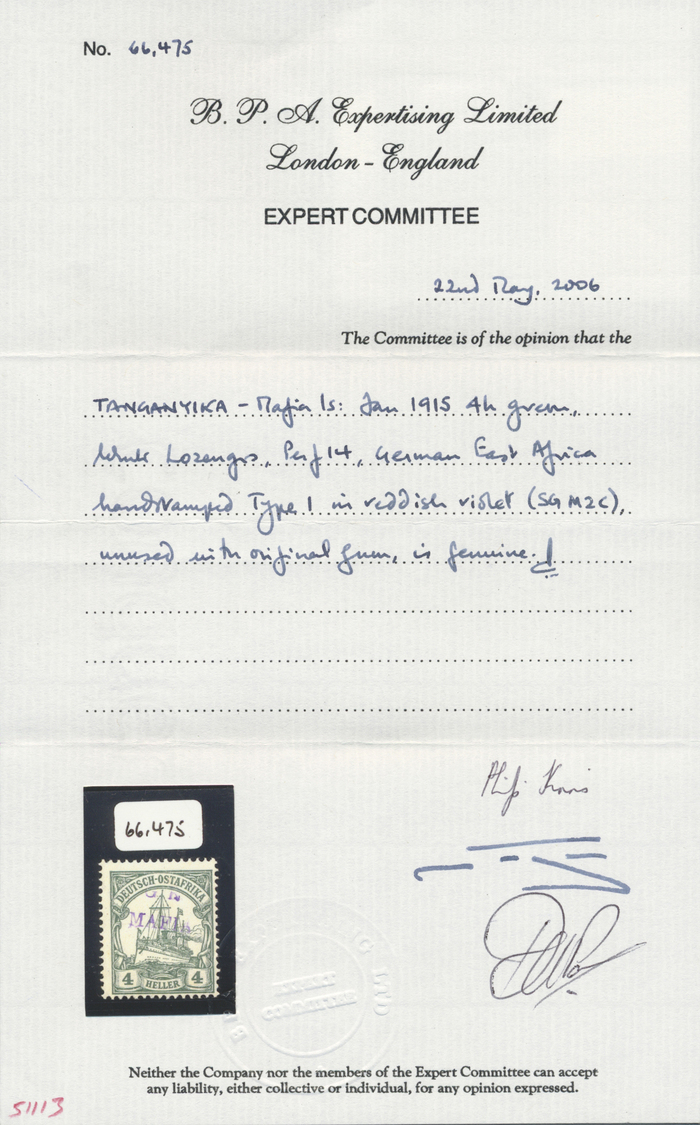 No. 66,475
B. P. A. Expertising Limited
London - England
EXPERT COMMITTEE
22nd May, 2006
The Committee is of the opinion that the
TANGANYIKA - Mafia Is: Jan 1915 4h green,
Wmk Lozenges, Perf 14, German East Africa
handstamped Type 1 in reddish violet (SG M2C),
unused with original gum, is genuine.
66,475
DEUTSCH-OSTAFRIKA
MAFIA
4 HELLER 4
EXPERT
COMMITTEE
Neither the Company nor the members of the Expert Committee can accept
any liability, either collective or individual, for any opinion expressed.
51113